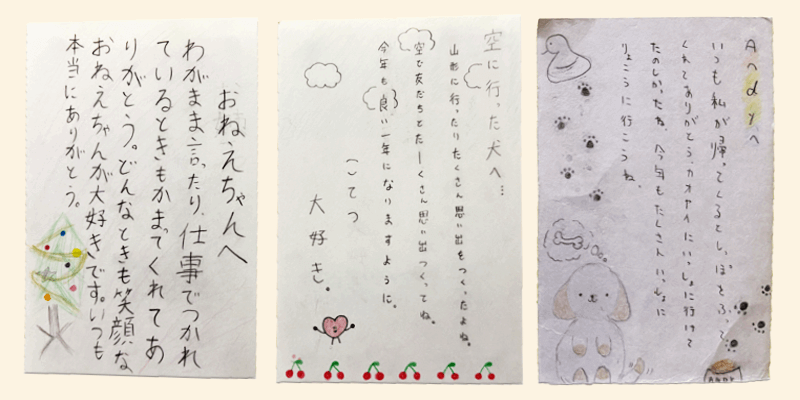 おねえちゃんへ
わがまま言ったり、仕事でつかれ
ているときもかまってくれてあ
りがとう。どんなときも笑顔な
おねえちゃんが大好きです。いつも
本当にありがとう。
空に行った犬へ…
山形に行ったりたくさん思い出をつくったよね。
空で友だちとたーくさん思い出つくってね。
今年も良い一年になりますように。
こてつ
大好き。
Andyへ
いつも私が帰ってくるとしっぽをふって
くれてありがとう。カオヤイにいっしょに行けて
たのしかったね。今年もたくさんいっしょに
りょこうに行こうね。
ANDY